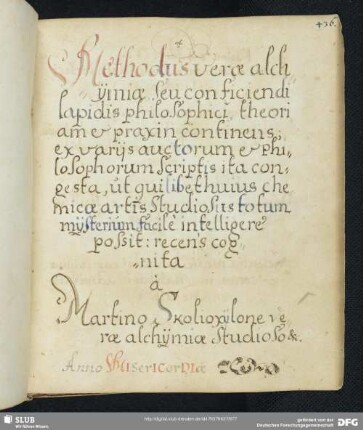 436
Methodus veræ alch
ÿmiæ seu conficiendi
lapidis philosophici, theori
am & praxin continens,
ex varijs auctorum & phi„
losophorum scriptis ita con„
gesta, ut quilibet huius che
micæ artis studiosus totum
mysterium facile intelligere
possit: recens cog„
„nita
à
Martino Skolioxylone ve
ræ alchÿmiæ studioso &.
Anno MIsericorDiæ
SLUB
Wir führen Wissen.
gefördert von der
Deutschen Forschungsgemeinschaft
DFG